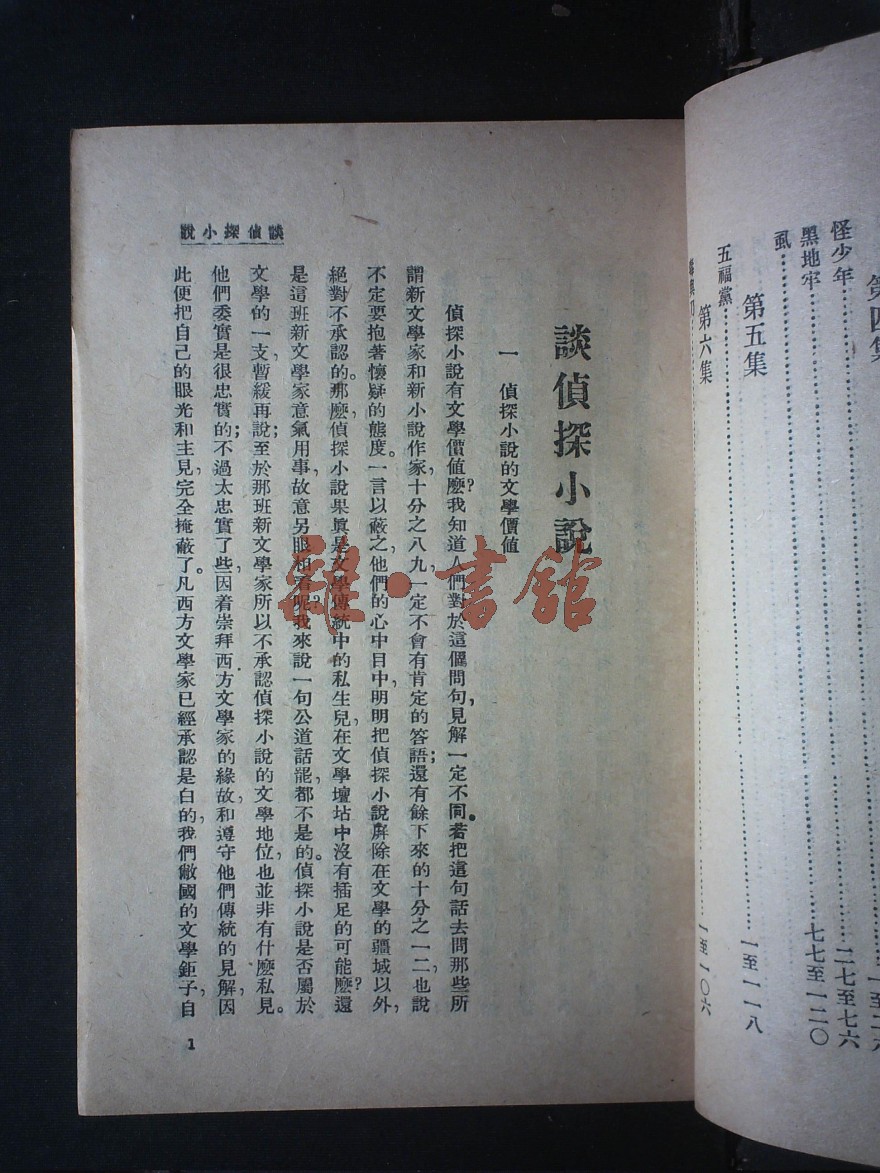 第四集
怪少年……………………二七至七六
黑地牢……………………七七至一二〇
虱
第五集
五福黨……………………一至一一八
第六集
……………………一至一〇六
說小探偵談
談偵探小說
一 偵探小說的文學價值
偵探小說有文學價值麽?我知道人們對於這個問句,見解一定不同。若把這句話去問那些所
謂新文學家和新小說作家,十分之八九一定不會有肯定的答語;還有餘下來的十分之一二,也說
不定要抱著懷疑的態度。一言以蔽之,他們的心中目中,明明把偵探小說屏除在文學的疆域以外,
絕對不承認的。那麽,偵探小說果眞是文學傳統中的私生兒,在文學壇坫中沒有插足的可能麽?還
是這班新文學家意氣用事,故意另眼相看呢?我來說一句公道話罷,都不是的。偵探小說是否屬於
文學的一支,暫緩再說;至於那班新文學家所以不承認偵探小說的文學地位,也並非有什麽私見。
他們委實是很忠實的;不過太忠實了些,因着崇拜西方文學家的緣故,和遵守他們傳統的見解,因
此便把自己的眼光和主見,完全掩蔽了。凡西方文學家已經承認是白的,我們敝國的文學鉅子,自
1
雜·書館